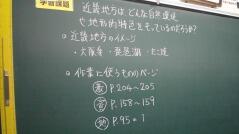 学習課題
近畿地方は、どんな自然環境
や地形的特色をもっているのだろうか?
◦近畿地方のイメージ
・大阪府・琵琶湖・たこ焼
◦作業に使うもののページ
教 P.204~205
P.158~159
地 P.95